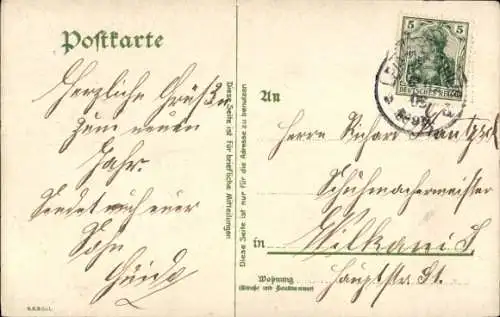 Postkarte
Herzliche Grüße
zum neuen
Jahr.
Sendet euch euer
Sohn
Diese Seite ist für briefliche Mitteilungen
Diese Seite ist nur für die Adresse zu benutzen
5 5
DEUTSCHES REICH
An
Herrn Richard
Schuhmachermeister
in
Wohnung
(Straße und Hausnummer)
Hauptstr.